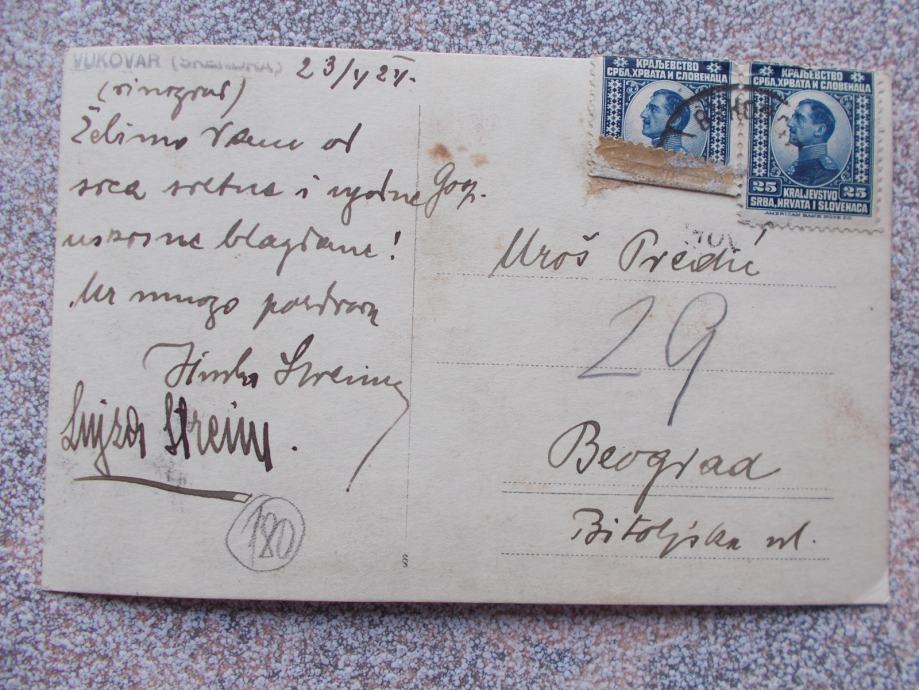 VUKOVAR
23/V 24.
(vinograd)
Želimo Vam od
srca sretne i ugodne
uskrsne blagdane!
mnogo pozdrava
Hinko Streim
Streim
180
КРАЉЕВСТВО
СРБА, ХРВАТА И СЛОВЕНАЦА
КРАЉЕВСТВО
СРБА, ХРВАТА И СЛОВЕНАЦА
25 KRALJEVSTVO 25
SRBA, HRVATA I SLOVENACA
AMERICAN BANK NOTE CO.
Gosp.
Uroš Predić
29
Beograd
Bitoljska ul.